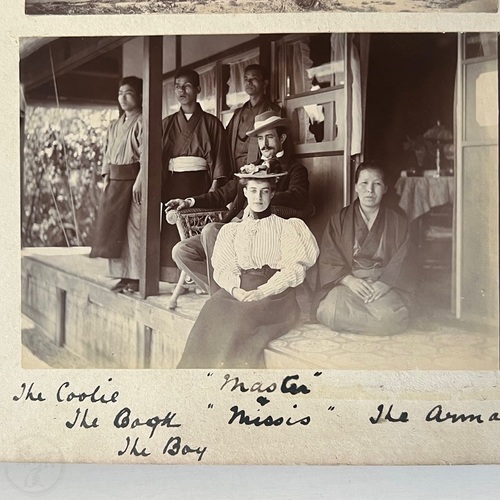 The Coolie
The Cook
The Boy
"Master"
&
"Missis"
The Arma